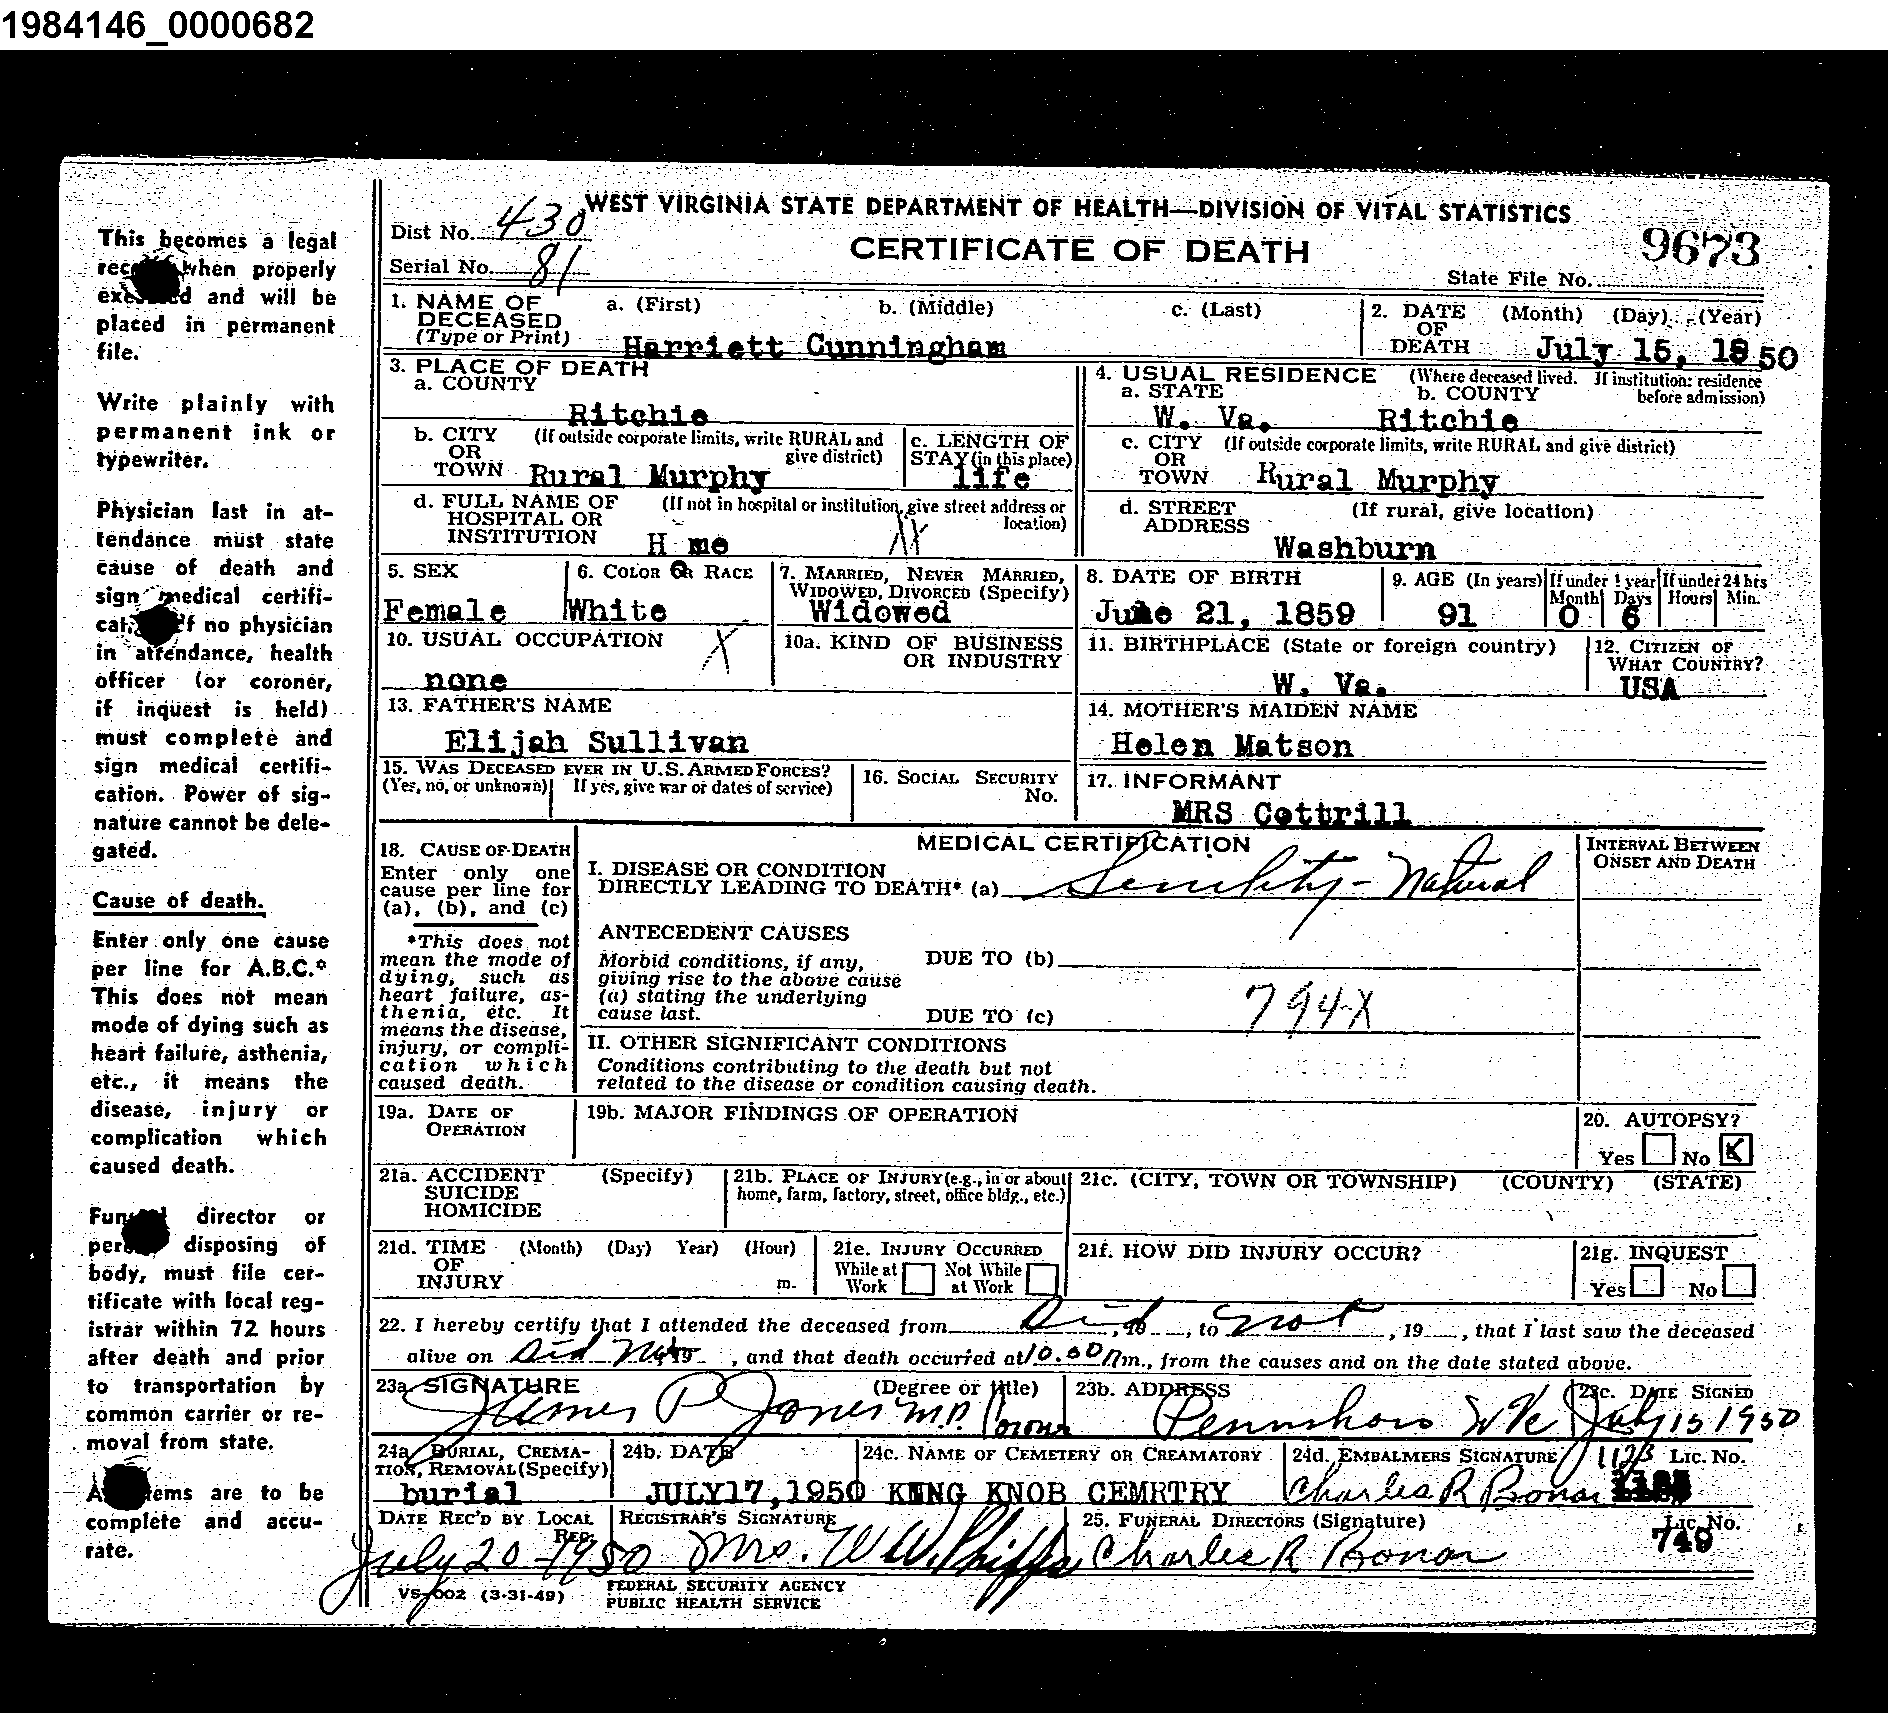 1984146_0000682
WEST VIRGINIA STATE DEPARTMENT OF HEALTH—DIVISION OF VITAL STATISTICS
Dist No. 430
CERTIFICATE OF DEATH
9673
Serial No. 81
State File No.
This becomes a legal
when properly
and will be
placed in permanent
file.
Write plainly with
permanent ink or
typewriter.
Physician last in at-
tendance must state
cause of death and
sign medical certifi-
if no physician
in attendance, health
officer (or coroner,
if inquest is held)
must complete and
sign medical certifi-
cation. Power of sig-
nature cannot be dele-
gated.
Cause of death.
Enter only one cause
per line for A.B.C.*
This does not mean
mode of dying such as
heart failure, asthenia,
etc., it means the
disease, injury or
complication which
caused death.
director or
disposing of
body, must file cer-
tificate with local reg-
istrar within 72 hours
after death and prior
to transportation by
common carrier or re-
moval from state.
are to be
complete and accu-
rate.
1. NAME OF DECEASED (Type or Print) a. (First) b. (Middle) c. (Last)
Harriett Cunningham
2. DATE OF DEATH (Month) (Day) (Year)
July 15, 1850
3. PLACE OF DEATH
a. COUNTY
Ritchie
b. CITY OR TOWN (If outside corporate limits, write RURAL and give district)
Rural Murphy
c. LENGTH OF STAY (in this place)
life
d. FULL NAME OF HOSPITAL OR INSTITUTION (If not in hospital or institution, give street address or location)
H me
4. USUAL RESIDENCE (Where deceased lived. If institution: residence before admission)
a. STATE b. COUNTY
W. Va. Ritchie
c. CITY OR TOWN (If outside corporate limits, write RURAL and give district)
Rural Murphy
d. STREET ADDRESS (If rural, give location)
Washburn
5. SEX
Female
6. COLOR OR RACE
White
7. MARRIED, NEVER MARRIED, WIDOWED, DIVORCED (Specify)
Widowed
8. DATE OF BIRTH
June 21, 1859
9. AGE (In years)
91
If under 1 year
Month Days
0 6
If under 24 hrs
Hours Min.
10. USUAL OCCUPATION X
none
10a. KIND OF BUSINESS OR INDUSTRY
11. BIRTHPLACE (State or foreign country)
W. Va.
12. CITIZEN OF WHAT COUNTRY?
USA
13. FATHER'S NAME
Elijah Sullivan
14. MOTHER'S MAIDEN NAME
Helen Matson
15. WAS DECEASED EVER IN U.S. ARMED FORCES?
(Yes, no, or unknown) If yes, give war or dates of service)
16. SOCIAL SECURITY No.
17. INFORMANT
MRS Cottrill
18. CAUSE OF DEATH
Enter only one
cause per line for
(a), (b), and (c)
*This does not
mean the mode of
dying, such as
heart failure, as-
thenia, etc. It
means the disease,
injury, or compli-
cation which
caused death.
MEDICAL CERTIFICATION
I. DISEASE OR CONDITION
DIRECTLY LEADING TO DEATH* (a) Senility - Natural
ANTECEDENT CAUSES
Morbid conditions, if any,
giving rise to the above cause
(a) stating the underlying
cause last.
DUE TO (b)
DUE TO (c)
794X
II. OTHER SIGNIFICANT CONDITIONS
Conditions contributing to the death but not
related to the disease or condition causing death.
INTERVAL BETWEEN
ONSET AND DEATH
19a. DATE OF OPERATION
19b. MAJOR FINDINGS OF OPERATION
20. AUTOPSY?
Yes No X
21a. ACCIDENT SUICIDE HOMICIDE (Specify)
21b. PLACE OF INJURY (e.g., in or about home, farm, factory, street, office bldg., etc.)
21c. (CITY, TOWN OR TOWNSHIP) (COUNTY) (STATE)
21d. TIME OF INJURY (Month) (Day) Year) (Hour) m.
21e. INJURY OCCURRED
While at Work Not While at Work
21f. HOW DID INJURY OCCUR?
21g. INQUEST
Yes No
22. I hereby certify that I attended the deceased from Did, 19, to not, 19, that I last saw the deceased
alive on Did Not, 19, and that death occurred at 10.00 m., from the causes and on the date stated above.
23a. SIGNATURE (Degree or title)
James P Jones M.D.
23b. ADDRESS
Pennsboro W Va
23c. DATE SIGNED
July 15 1950
24a. BURIAL, CREMATION, REMOVAL (Specify)
burial
24b. DATE
JULY17,1950
24c. NAME OF CEMETERY OR CREAMATORY
KNNG KNOB CEMRTRY
24d. EMBALMERS SIGNATURE Lic. No.
Charles R Bonar
DATE REC'D BY LOCAL REG.
July 20-1950
REGISTRAR'S SIGNATURE
Mrs. W W. Phipps
25. FUNERAL DIRECTORS (Signature) Lic. No.
Charles R Bonar 749
VS-002 (3-31-49)
FEDERAL SECURITY AGENCY
PUBLIC HEALTH SERVICE